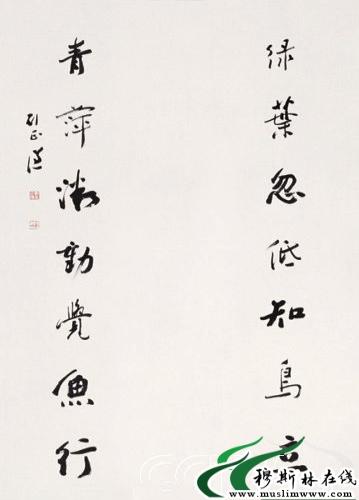 绿葉忽低知鳥立
青萍微動覺魚行
穆斯林在线
www.muslimwww.com